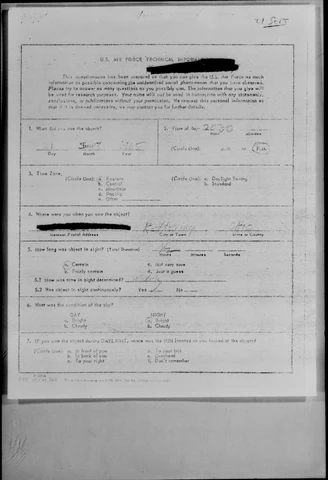 U.S. AIR FORCE TECHNICAL INFORMATION
This questionnaire has been prepared so that you can give the U.S. Air Force as much
information as possible concerning the unidentified aerial phenomenon that you have observed.
Please try to answer as many questions as you possibly can. The information that you give will
be used for research purposes. Your name will not be used in connection with any statements,
conclusions, or publications without your permission. We request this personal information so
that if it is deemed necessary, we may contact you for further details.
1. When did you see the object?
2. Time of day:
Hour Minutes
Day Month Year
(Circle One): A.M. or P.M.
3. Time Zone:
(Circle One): a. Eastern
b. Central
c. Mountain
d. Pacific
e. Other
(Circle One): a. Daylight Saving
b. Standard
4. Where were you when you saw the object?
Nearest Postal Address City or Town State or County
5. How long was object in sight? (Total Duration)
Hours Minutes Seconds
a. Certain c. Not very sure
b. Fairly certain d. Just a guess
5.1 How was time in sight determined?
5.2 Was object in sight continuously? Yes No
6. What was the condition of the sky?
DAY NIGHT
a. Bright a. Bright
b. Cloudy b. Cloudy
7. IF you saw the object during DAYLIGHT, where was the SUN located as you looked at the object?
(Circle One): a. In front of you d. To your left
b. In back of you e. Overhead
c. To your right f. Don't remember